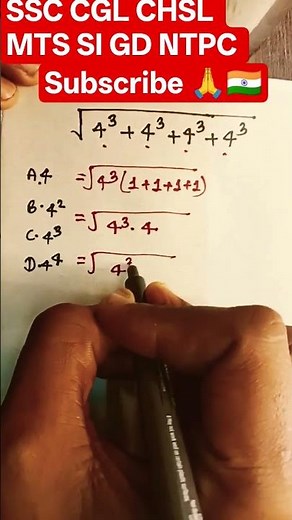 SSC CGL CHSL
MTS SI GD NTPC
Subscribe 🙏🇮🇳
√4³ + 4³ + 4³ + 4³
A. 4 = √4³(1+1+1+1)
B. 4²
= √4³ · 4
C. 4³
D. 4⁴ = √4³